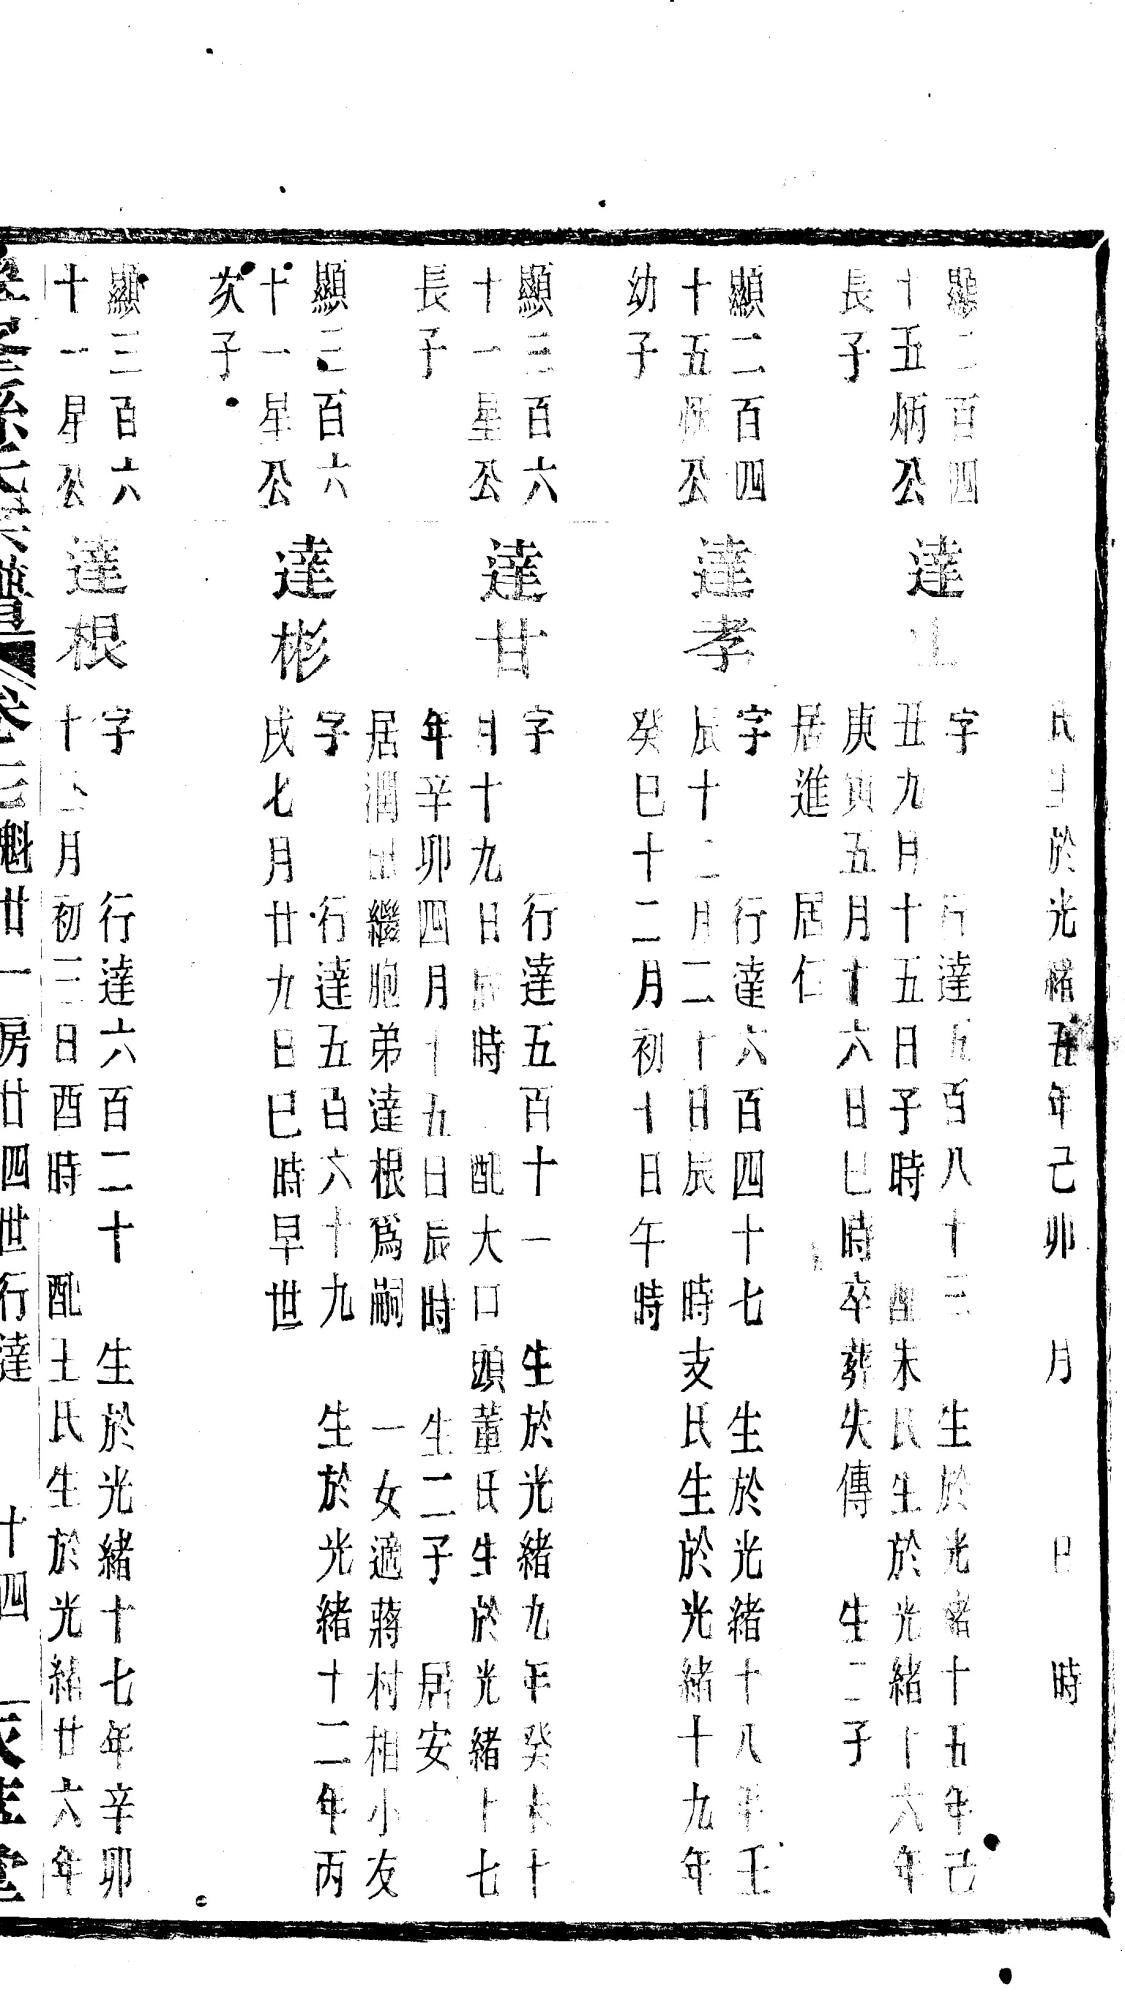 氏生於光緒五年己卯 月 日 時
顯二百四
十五炳公
長子
達
字 行達五百八十三 生於光緒十五年己
丑九月十五日子時 配朱氏生於光緒十六年
庚寅五月十六日巳時卒葬失傳 生二子
居進 居仁
顯二百四
十五炳公
幼子
達孝
字 行達六百四十七 生於光緒十八年壬
辰十二月二十日辰時支氏生於光緒十九年
癸巳十二月初十日午時
顯三百六
十一星公
長子
達甘
字 行達五百十一 生於光緒九年癸未十
月十九日辰時 配大口頭董氏生於光緒十七
年辛卯四月十五日辰時 生二子 居安
居潤出繼胞弟達根爲嗣 一女適蔣村相小友
顯三百六
十一星公
次子
達彬
字 行達五百六十九 生於光緒十二年丙
戌七月廿九日巳時早世
顯三百六
十一星公
達根
字 行達六百二十 生於光緒十七年辛卯
十二月初三日酉時 配王氏生於光緒廿六年
孫氏宗譜 卷 魁廿一房廿四世行達 十四 堂